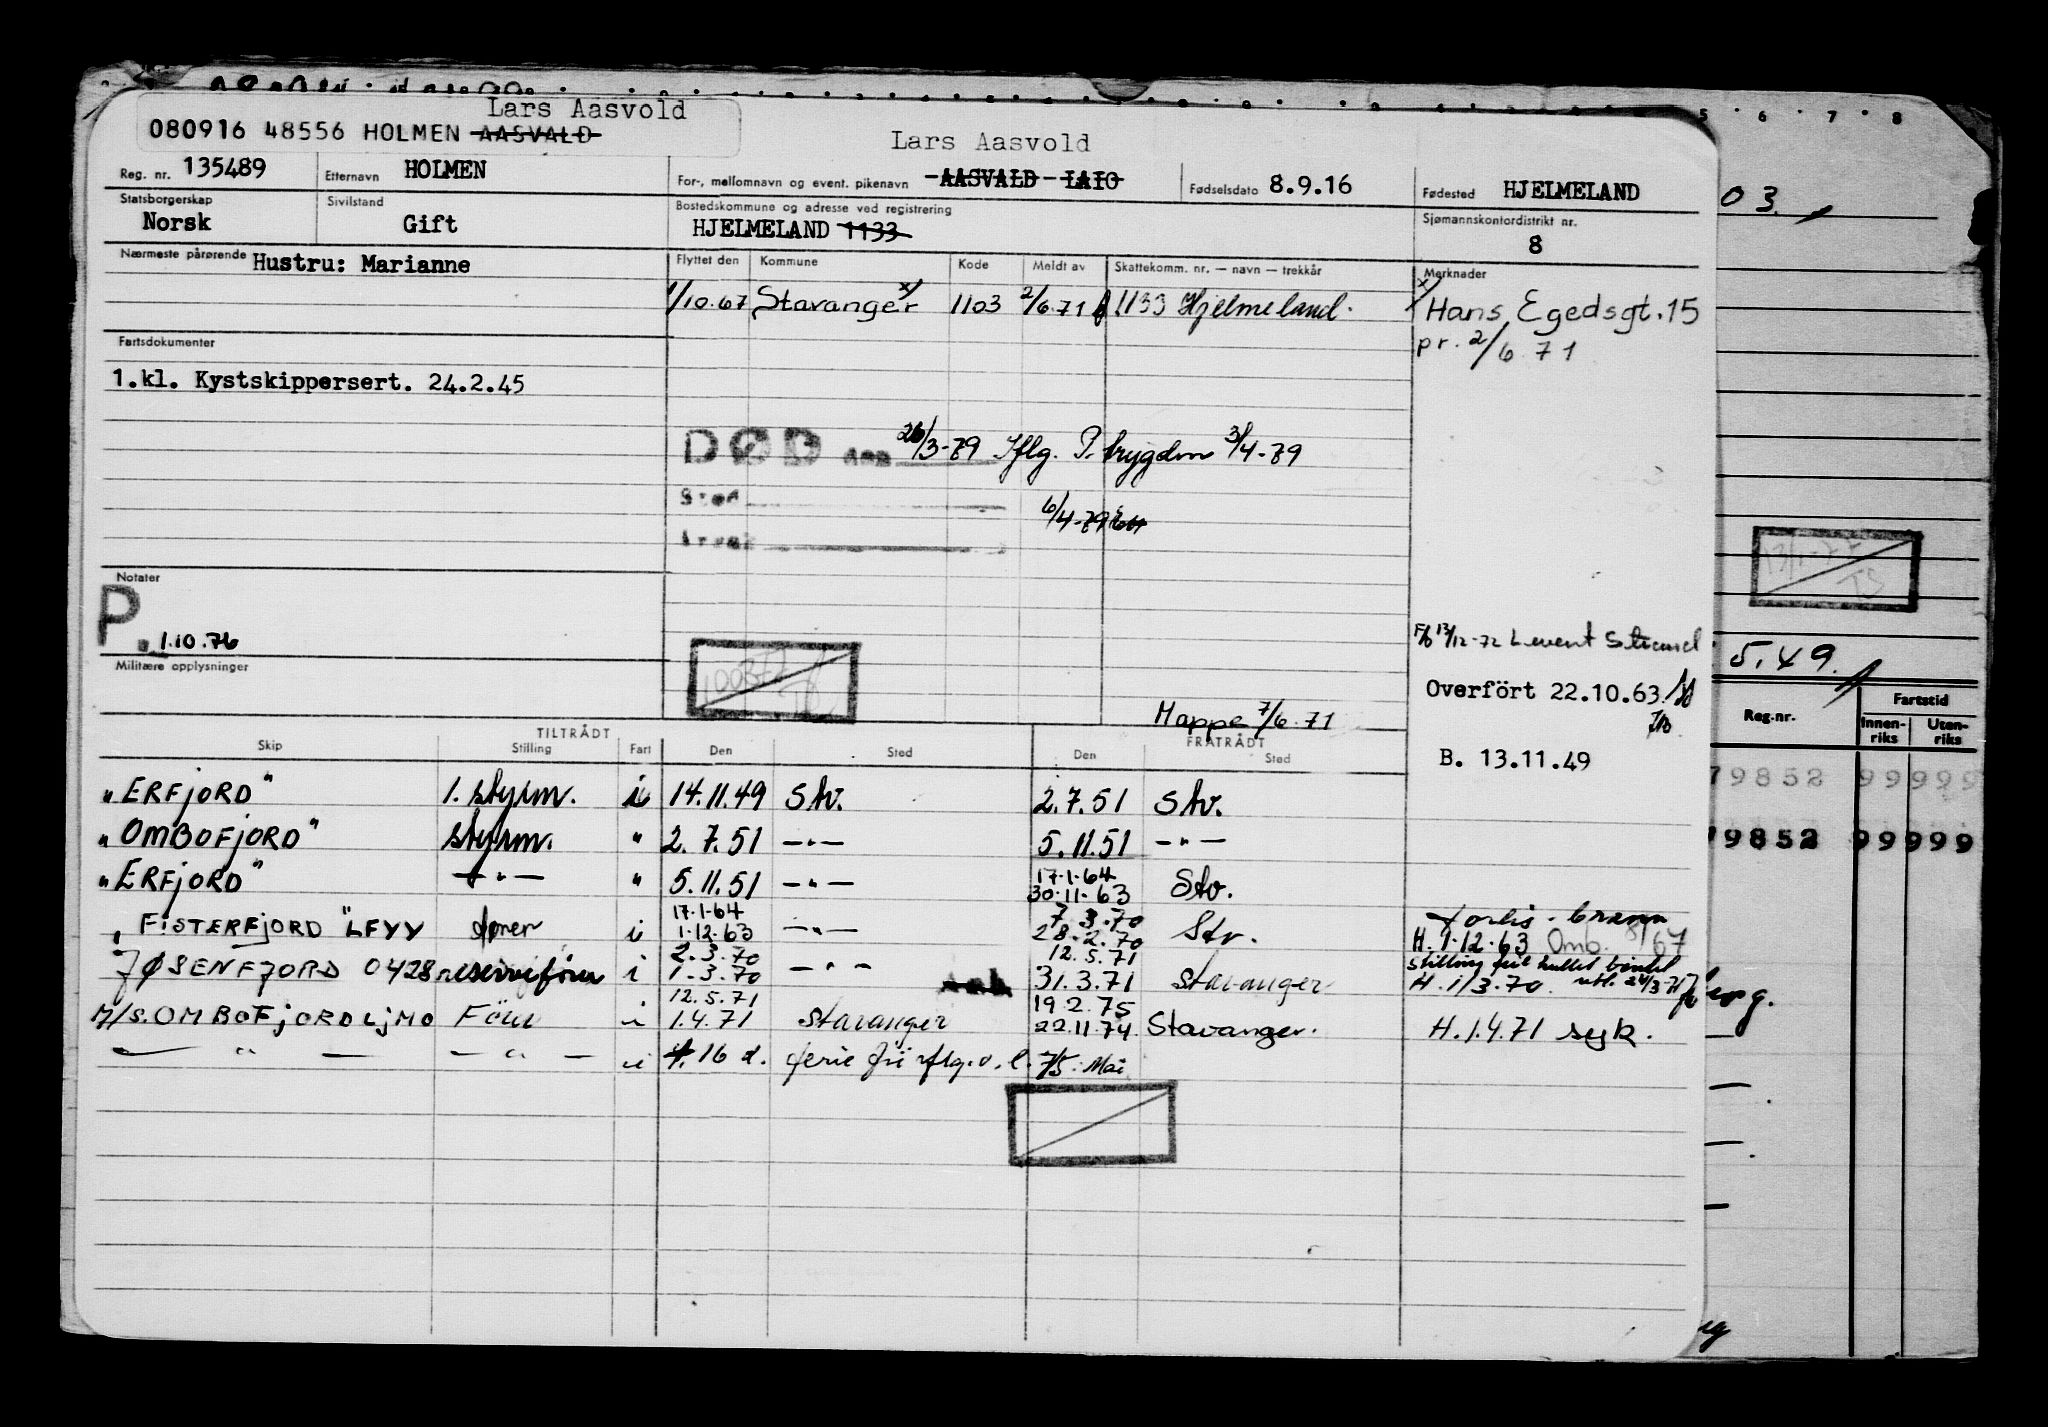 Lars Aasvold
080916 48556 HOLMEN AASVALD
Lars Aasvold
Reg. nr. 135489 Etternavn HOLMEN For-, mellomnavn og event. pikenavn AASVALD LAIO Fødselsdato 8.9.16 Fødested HJELMELAND
Statsborgerskap Norsk Sivilstand Gift Bostedskommune og adresse ved registrering HJELMELAND 1133 Sjømannskontordistrikt nr. 8
Nærmeste pårørende Hustru: Marianne Flyttet den Kommune Kode Meldt av Skattekomm. nr. — navn — trekkår Merknader
1/10.67 Stavanger x/ 1103 2/6.71 1133 Hjelmeland. x/ Hans Egedsgt. 15
pr. 2/6 71
Fartsdokumenter
1.kl. Kystskippersert. 24.2.45
DØD den 26/3-79 Iflg. P. trygden 3/4-79
Sted
6/4-79
Årsak
Notater
P. 1.10.76
12/12-72
Militære opplysninger
Overfört 22.10.63
Mappe 7/6.71
B. 13.11.49
TILTRÅDT FRATRÅDT
Skip Stilling Fart Den Sted Den Sted
"ERFJORD" 1. styrm. i 14.11.49 Stv. 2.7.51 Stv.
"OMBOFJORD" styrm. " 2.7.51 —"— 5.11.51 —"—
"ERFJORD" —"— " 5.11.51 —"— 17.1.64
30.11.63 Stv.
"FISTERFJORD" LFYY fører i 17.1.64
1.12.63 —"— 7.3.70
28.2.70 Stv. H. 1.12.63 Omb. 67
JØSENFJORD 0428 reservefører i 2.3.70
1.3.70 —"— 12.5.71
31.3.71 Stavanger H. 1/3.70
M/S. OMBOFJORD LJMO Förer i 12.5.71
1.4.71 Stavanger 19.2.75
22.11.74 Stavanger. H. 1.4.71 syk.
—"— —"— i 16 d. ferie 75 Mai
03.
5.49.
Reg.nr. Fartstid
Innenriks Utenriks
79852 99999
79852 99999
5 6 7 8